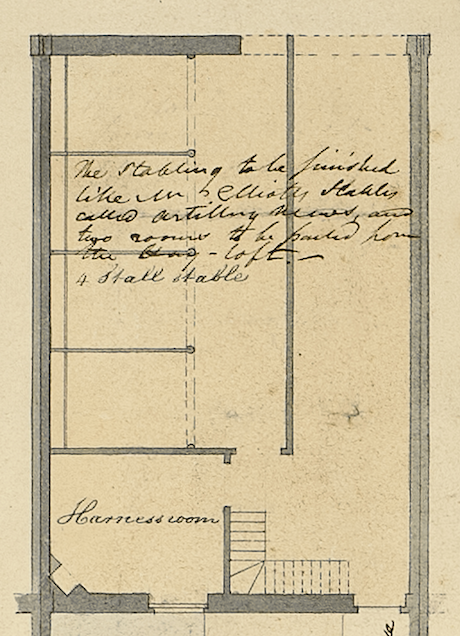 The Stabling to be finished
like Mr Elliotts Stables
called Artillery Mews, and
two rooms to be parted from
the Hay-loft
4 Stall stable
Harness room